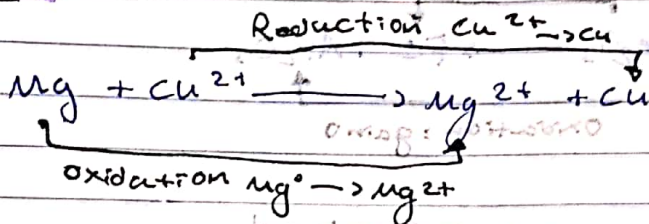 Reduction Cu²⁺→Cu
Mg + Cu²⁺ → Mg²⁺ + Cu
oxidation Mg° → Mg²⁺